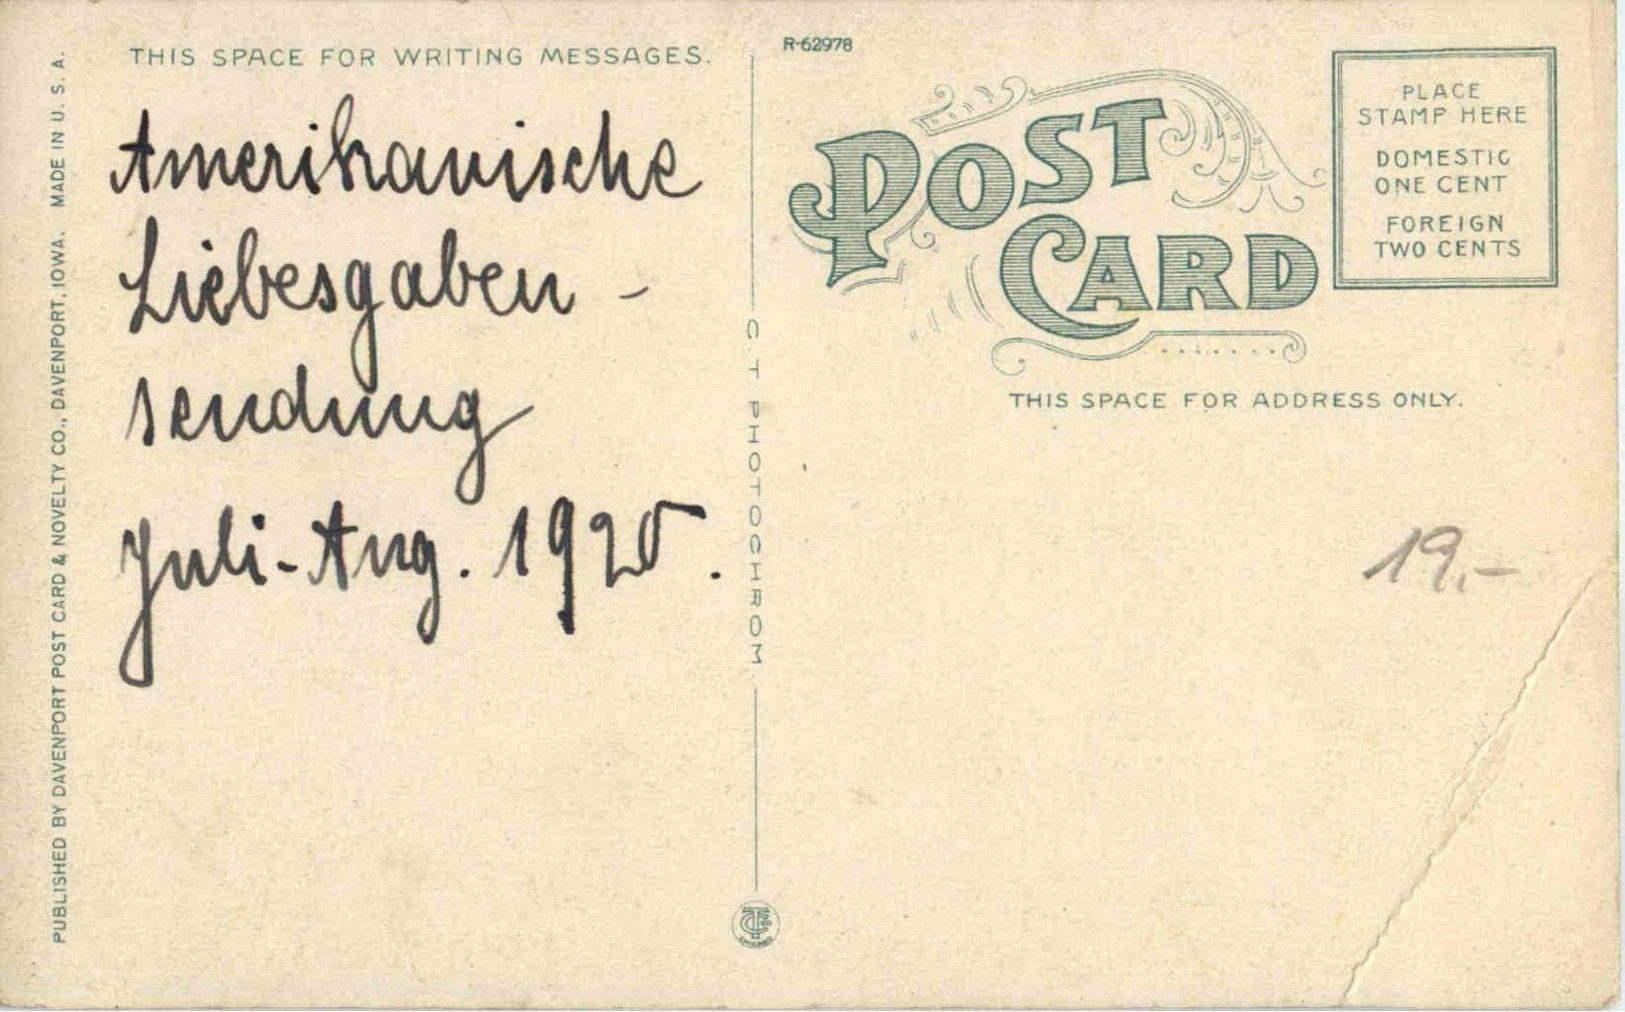 THIS SPACE FOR WRITING MESSAGES.
Amerikanische
Liebesgaben -
sendung
Juli - Aug. 1920.
PUBLISHED BY DAVENPORT POST CARD & NOVELTY CO., DAVENPORT, IOWA. MADE IN U. S. A.
C T PHOTOCHROM
R-62978
POST
CARD
PLACE
STAMP HERE
DOMESTIC
ONE CENT
FOREIGN
TWO CENTS
THIS SPACE FOR ADDRESS ONLY.
19.-